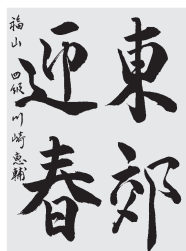 東郊
迎春
福山 四級 川崎惠輔